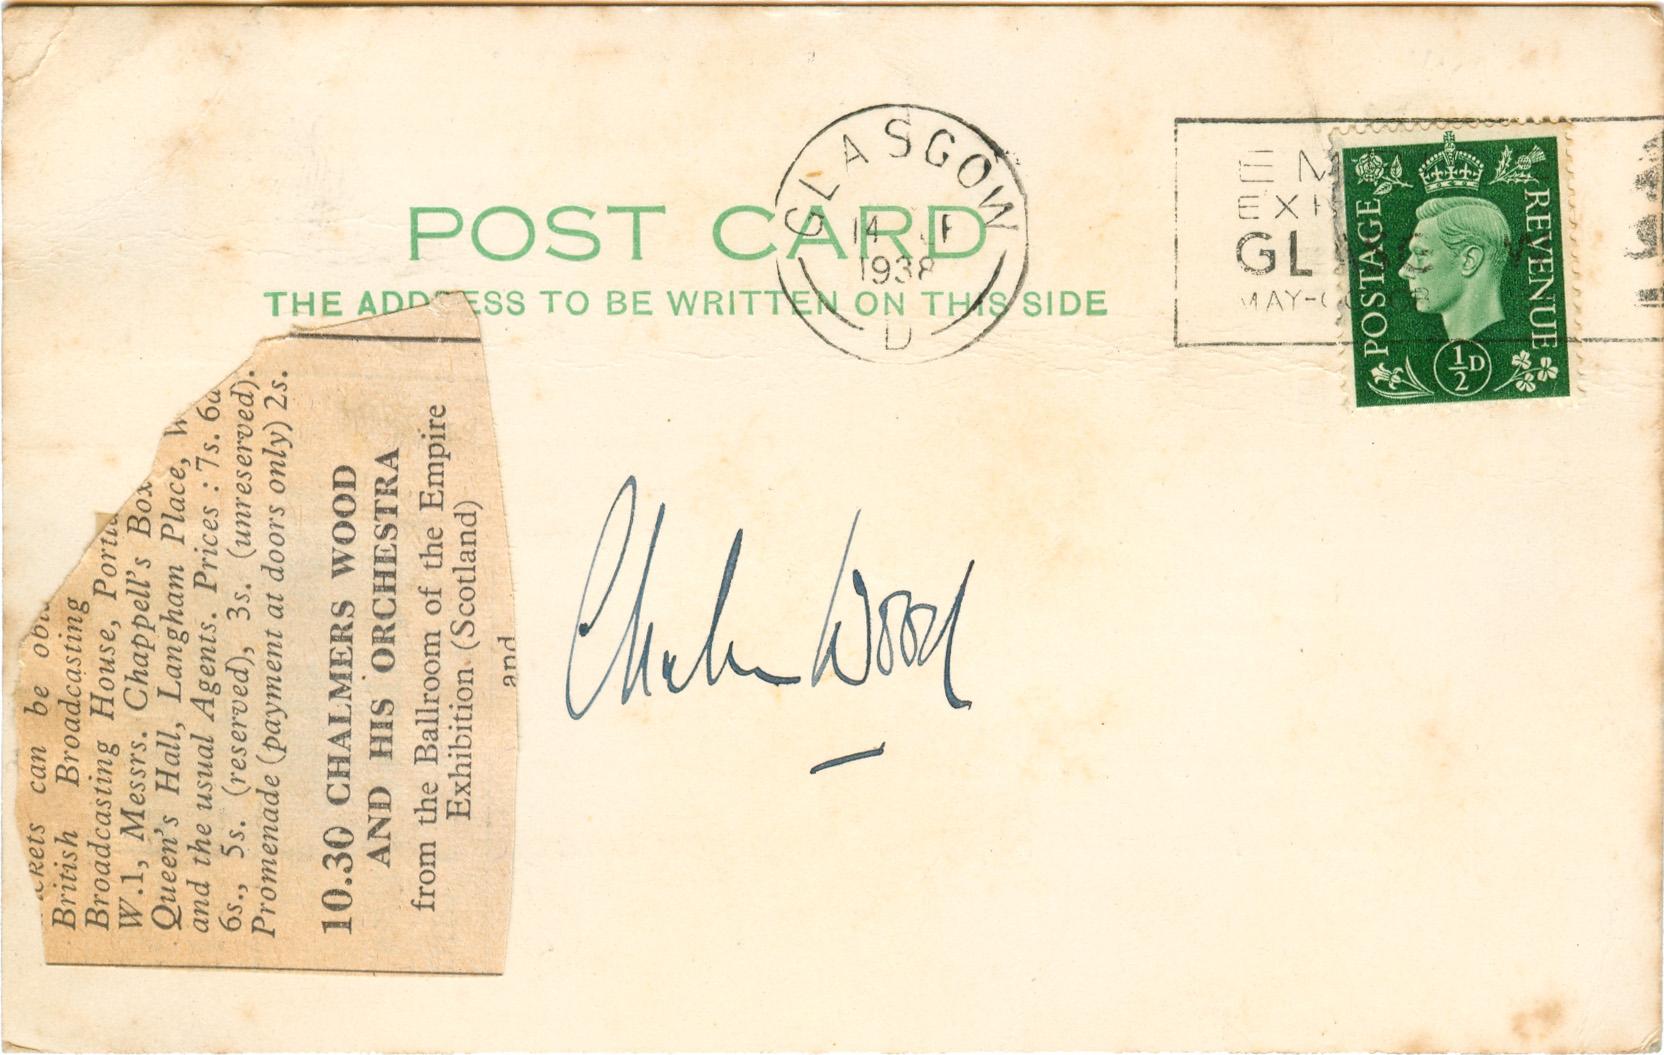 POST CARD
THE ADDRESS TO BE WRITTEN ON THIS SIDE
GLASGOW
14
1938
D
GL
MAY-
POSTAGE
REVENUE
½D
can be
British Broadcasting
Broadcasting House,
W.1, Messrs. Chappell's Box
Queen's Hall, Langham Place,
and the usual Agents. Prices : 7s. 6d
6s., 5s. (reserved), 3s. (unreserved).
Promenade (payment at doors only) 2s.
10.30 CHALMERS WOOD
AND HIS ORCHESTRA
from the Ballroom of the Empire
Exhibition (Scotland)
and
Chalmers Wood